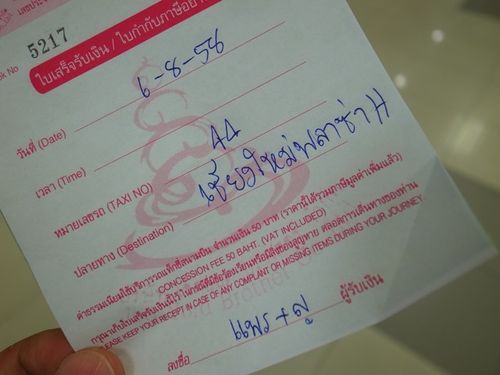 ok No 5217
ใบเสร็จรับเงิน / ใบกำกับภาษีอย่าง
วันที่ (Date) 6-8-56
เวลา (Time)
หมายเลขรถ (TAXI NO) A4
ปลายทาง (Destination) เชียงใหม่พลาซ่า H
ค่าธรรมเนียมใช้บริการรถแท็กซี่สนามบิน จำนวนเงิน 50 บาท (ราคานี้ได้รวมภาษีมูลค่าเพิ่มแล้ว)
CONCESSION FEE 50 BAHT. (VAT INCLUDED)
กรุณาเก็บใบเสร็จรับเงินไว้ในกรณีที่มีข้อร้องเรียนหรือมีสิ่งของสูญหาย ตลอดการเดินทางของท่าน
PLEASE KEEP YOUR RECEIPT IN CASE OF ANY COMPLAINT OR MISSING ITEMS DURING YOUR JOURNEY.
ลงชื่อ แพร+ลู ผู้รับเงิน